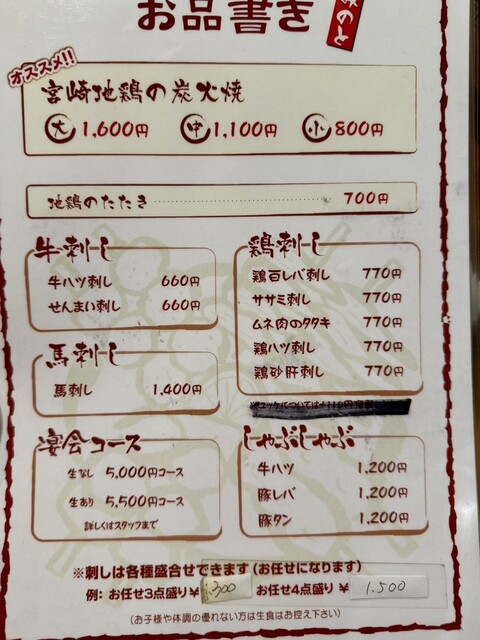 お品書き
オススメ!!
宮崎地鶏の炭火焼
大 1,600円 中 1,100円 小 800円
地鶏のたたき 700円
牛刺し
牛ハツ刺し 660円
せんまい刺し 660円
馬刺し
馬刺し 1,400円
宴会コース
生なし 5,000円コース
生あり 5,500円コース
詳しくはスタッフまで
鶏刺し
鶏白レバ刺し 770円
ササミ刺し 770円
ムネ肉のタタキ 770円
鶏ハツ刺し 770円
鶏砂肝刺し 770円
しゃぶしゃぶ
牛ハツ 1,200円
豚レバ 1,200円
豚タン 1,200円
※刺しは各種盛合せできます(お任せになります)
例: お任せ3点盛り¥1.300 お任せ4点盛り¥1.500
(お子様や体調の優れない方は生食はお控え下さい)